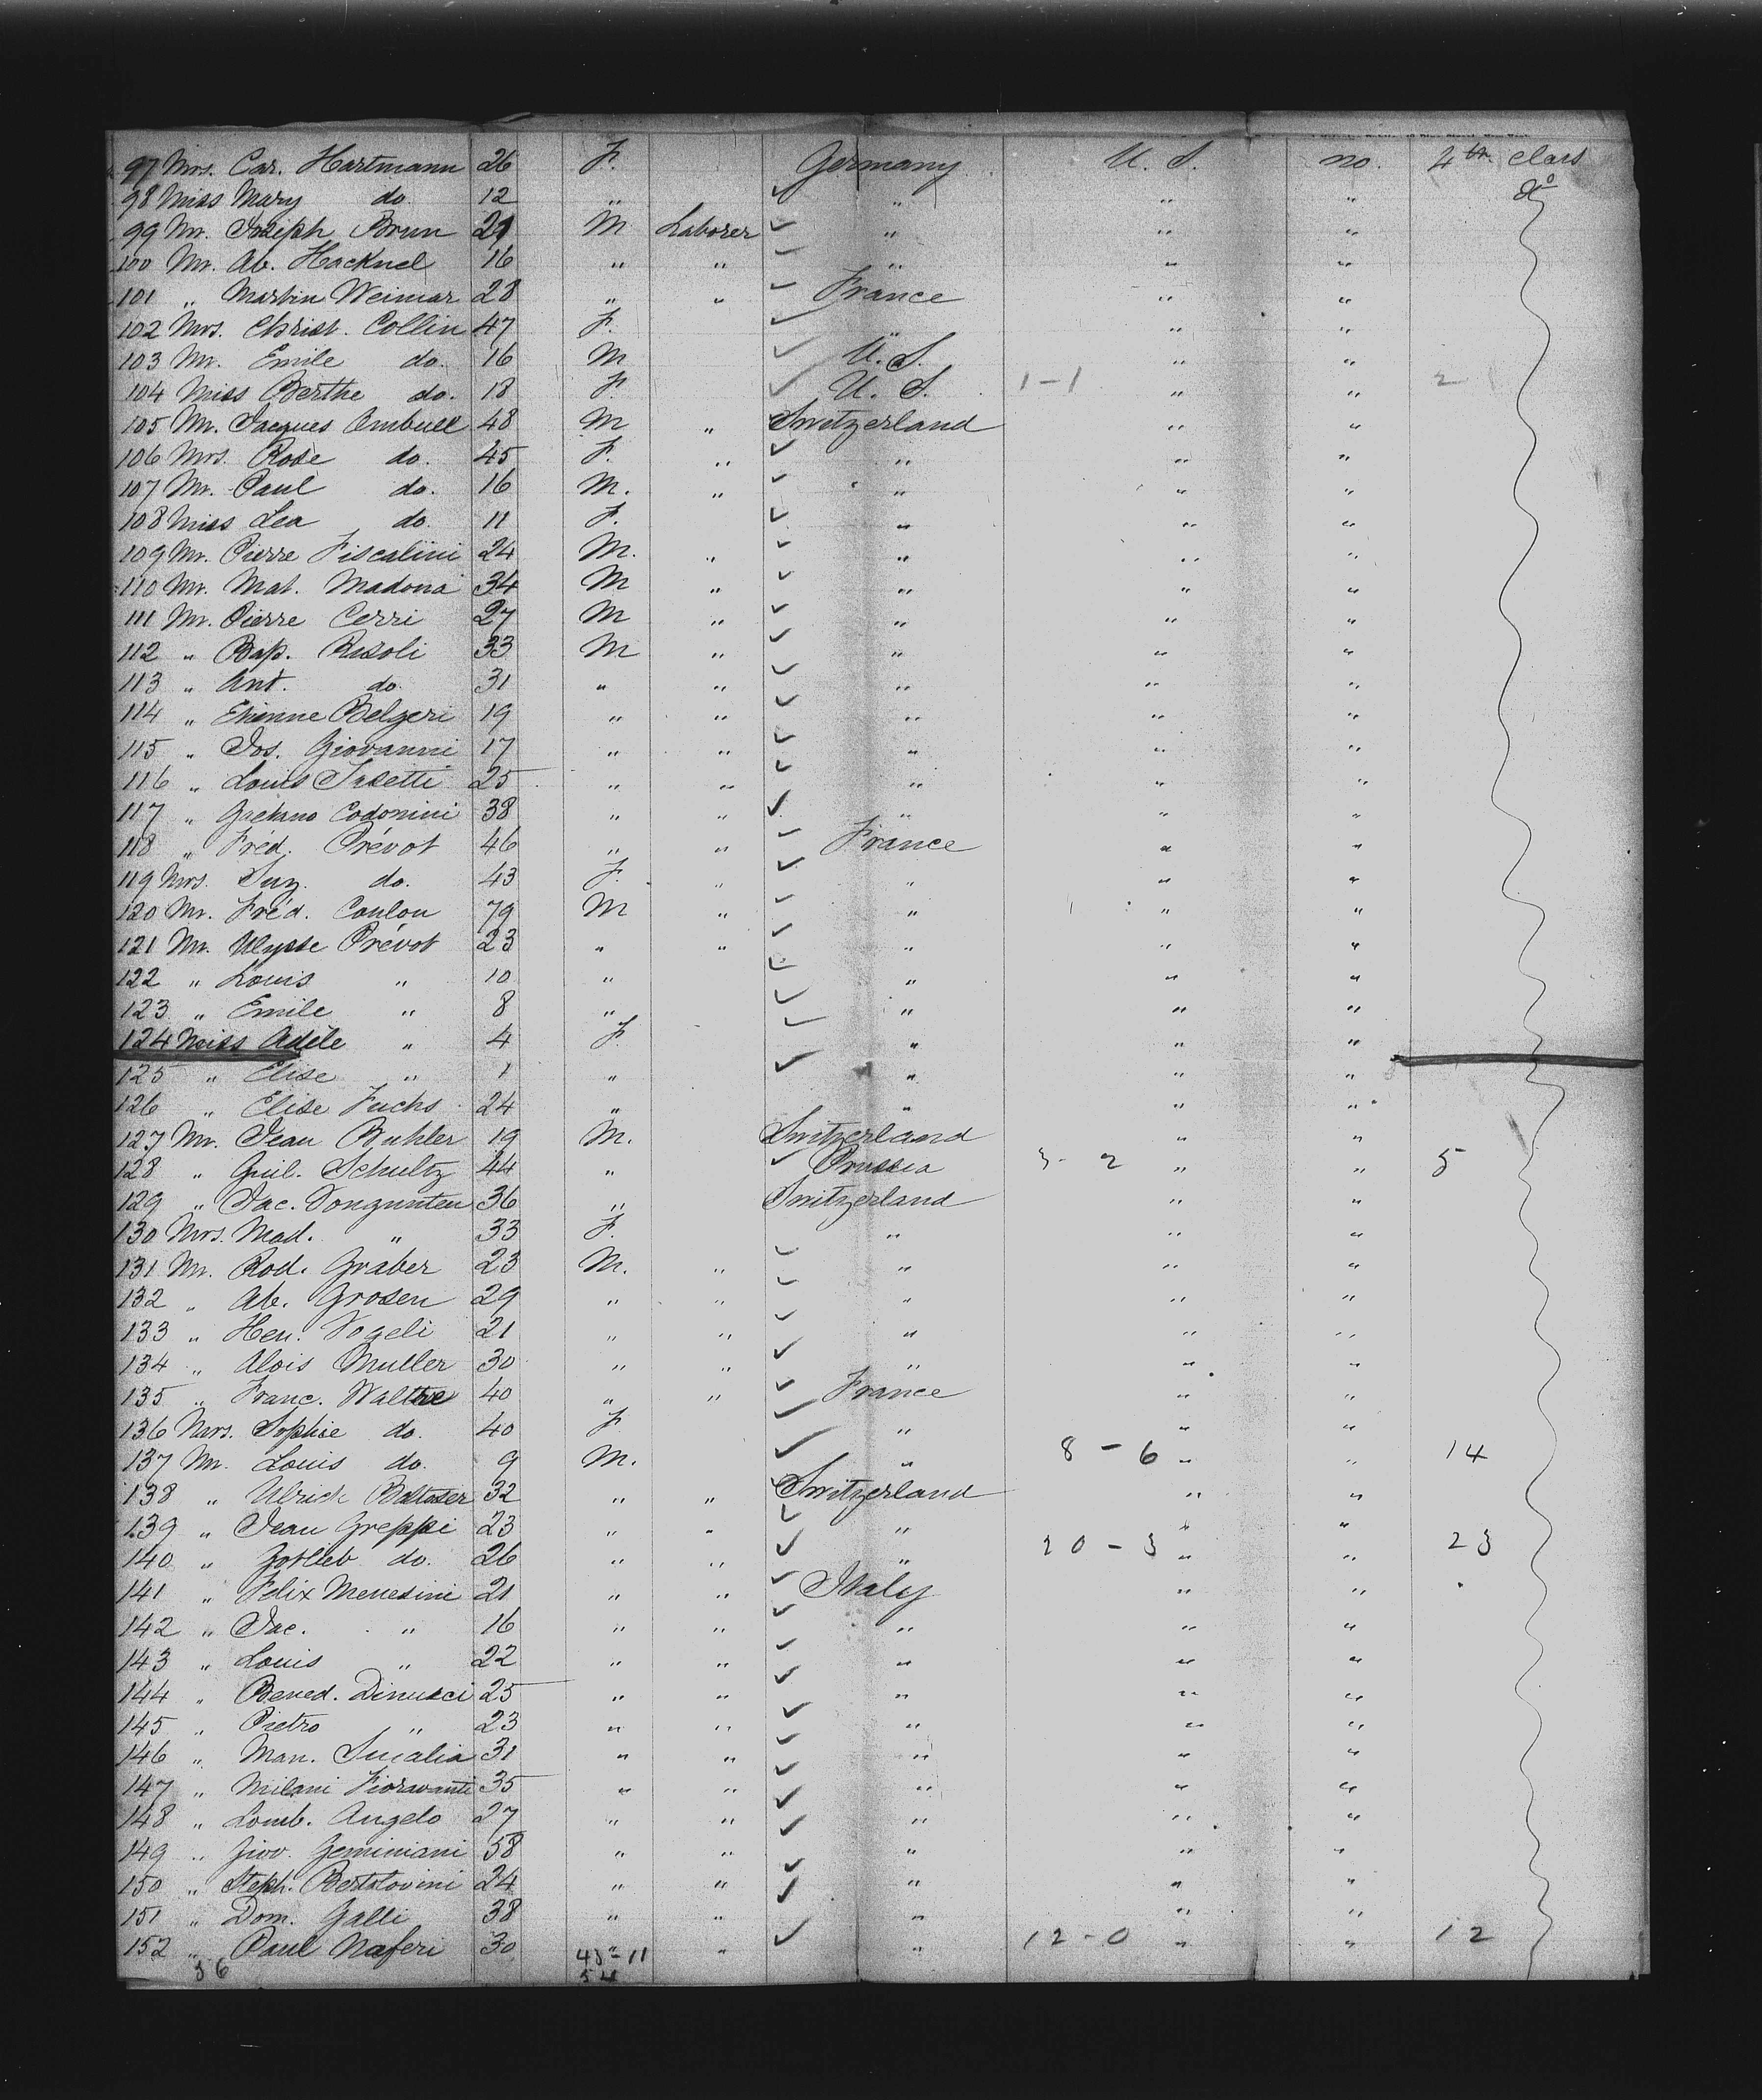 97 Mrs. Car. Hartmann 26 F. Germany U. S. no. 4th. Class
98 Miss Mary do. 12 „ „ „ „ do
99 Mr. Joseph Brun M Laborer „ „ „
100 Mr. Ab. Hacknel 16 „ „ „ „ „
101 „ Martin Weimar 28 „ „ France „ „
102 Mrs. Christ. Collin 47 F. „ „ „
103 Mr. Emile do. 16 M U. S. „ „
104 Miss Berthe do. 18 F. U. S. 1-1 „ „ 2
105 Mr. Jacques Ambuel 48 M „ Switzerland „ „
106 Mrs. Rose do. 45 F. „ „ „ „
107 Mr. Paul do. 16 M. „ „ „ „
108 Miss Lea do. 11 F. „ „ „
109 Mr. Pierre Fiscalini 24 M. „ „ „ „
110 Mr. Mat. Madona 34 M „ „ „ „
111 Mr. Pierre Cerri 27 M „ „ „ „
112 „ Bap. Rasoli 33 M „ „ „ „
113 „ Ant. do. 31 „ „ „ „ „
114 „ Etienne Belgeri 19 „ „ „ „ „
115 „ Jos. Giovanni 17 „ „ „ „ „
116 „ Louis 25 „ „ „ „ „
117 „ Gaetano Codonini 38 „ „ „ „ „
118 „ Fréd. Prévot 46 „ „ France „ „
119 Mrs. Suz. do. 43 F. „ „ „ „
120 Mr. Fréd. Coulon 79 M „ „ „ „
121 Mr. Ulysse Prévot 23 „ „ „ „ „
122 „ Louis „ 10 „ „ „ „
123 „ Emile „ 8 „ „ „ „
124 Miss Adèle „ 4 F. „ „ „
125 „ Elise „ 1 „ „ „ „
126 „ Elise Fuchs 24 „ „ „ „
127 Mr. Jean Buhler 19 M. Switzerland „ „
128 „ Guil. Schultz 44 „ Prussia 3-2 „ „ 5
129 „ Jac. Vongunten 36 „ Switzerland „ „
130 Mrs. Mad. „ 33 F. „ „ „
131 Mr. Rod. Graber 23 M. „ „ „ „
132 „ Ab. Grosen 29 „ „ „ „ „
133 „ Hen. Vogeli 21 „ „ „ „ „
134 „ Alois Muller 30 „ „ „ „ „
135 „ Franc. Walthe 40 „ „ France „ „
136 Mrs. Sophie do. 40 F. „ „ „
137 Mr. Louis do. 9 M. „ 8-6 „ „ 14
138 „ Ulrich 32 „ „ Switzerland „ „
139 „ Jean Greppi 23 „ „ „ „ „
140 „ Gotlieb do. 26 „ „ „ 20-3 „ „ 23
141 „ Felix Menesini 21 „ „ Italy „ „
142 „ Jac. „ 16 „ „ „ „ „
143 „ Louis „ 22 „ „ „ „ „
144 „ Bened. Dinucci 25 „ „ „ „ „
145 „ Pietro „ 23 „ „ „ „ „
146 „ Man. 31 „ „ „ „ „
147 „ Milani Fioravanti 35 „ „ „ „ „
148 „ Lomb. Angelo 27 „ „ „ „ „
149 „ Giov. Geminiani 58 „ „ „ „ „
150 „ Steph. Bertolovini 24 „ „ „ „ „
151 „ Dom. Galli 38 „ „ „ „ „
152 „ Paul Naferi 30 „ „ „ 12-0 „ „ 12